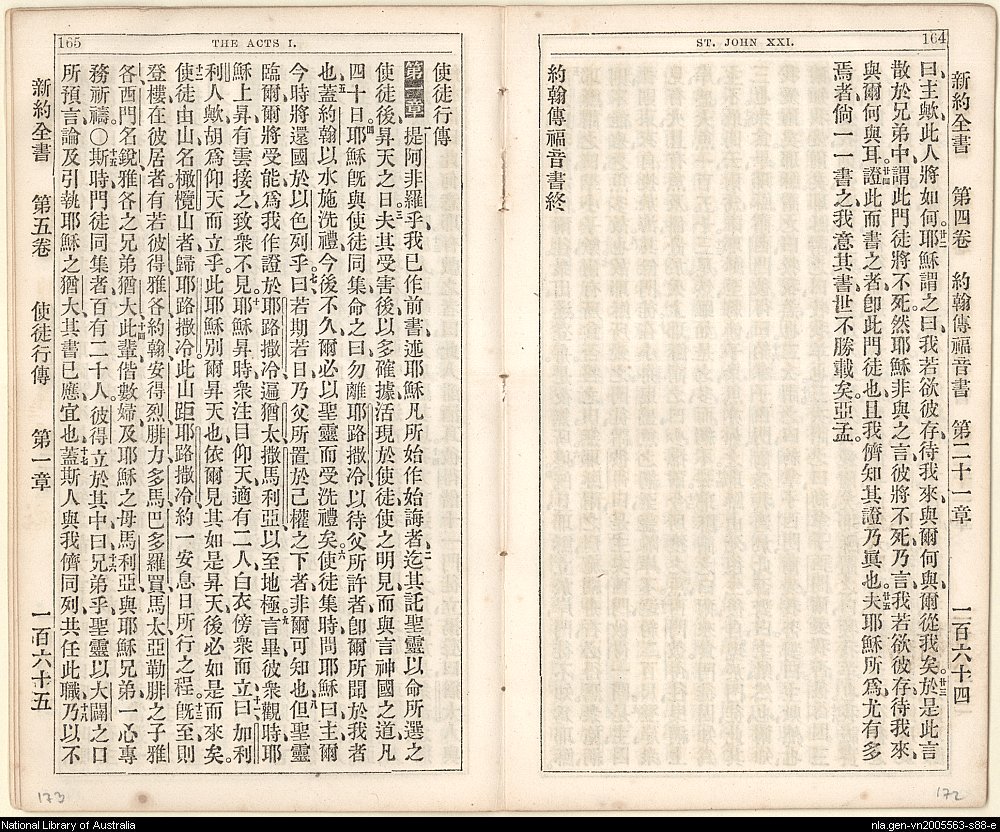 164
ST. JOHN XXI.
新約全書 第四卷 約翰傳福音書 第二十一章 一百六十四
曰、主歟、此人將如何。廿二耶穌謂之曰、我若欲彼存待我來、與爾何與、爾從我矣。廿三於是此言
散於兄弟中、謂此門徒將不死、然耶穌非與之言彼將不死、乃言我若欲彼存待我來、
與爾何與耳。廿四證此而書之者、卽此門徒也、且我儕知其證乃眞也。廿五夫耶穌所爲尤有多
焉者、倘一一書之、我意其書世不勝載矣。亞孟。
約翰傳福音書終
165
THE ACTS I.
使徒行傳
第一章 一提阿非羅乎、我已作前書、述耶穌凡所始作始誨者、二迄其託聖靈以命所選之
使徒後、昇天之日、夫其受害後、三以多確據活現於使徒、使之明見、而與言神國之道、凡
四十日。四耶穌旣與使徒同集、命之曰、勿離耶路撒冷、以待父所許者、卽爾所聞於我者
也、五蓋約翰以水施洗禮、今後不久、爾必以聖靈而受洗禮矣。六使徒集時、問耶穌曰、主爾
今時將還國於以色列乎。七曰、若期若日、乃父所置於己權之下者、非爾可知也、八但聖靈
臨爾、爾將受能、爲我作證於耶路撒冷、遍猶太、撒馬利亞、以至地極。九言畢、彼衆觀時、耶
穌上昇、有雲接之、致衆不見。十耶穌昇時、衆注目仰天、適有二人白衣、傍衆而立、十一曰、加利
利人歟、胡爲仰天而立乎。此耶穌別爾昇天也、依爾見其如是昇天、後必如是而來矣。
十二使徒由山名橄欖山者、歸耶路撒冷、此山距耶路撒冷、約一安息日所行之程。十三旣至、則
登樓、在彼居者、有若彼得、雅各、約翰、安得烈、腓力、多馬、巴多羅買、馬太、亞勒腓之子雅
各、西門名銳、雅各之兄弟猶大、十四此輩偕數婦、及耶穌之母馬利亞、與耶穌兄弟、一心專
務祈禱〇十五斯時門徒同集者、百有二十人、彼得立於其中曰、十六兄弟乎、聖靈以大闢之口
所預言、論及引執耶穌之猶大、其書已應、宜也、十七蓋斯人與我儕同列、共任此職、十八乃以不
新約全書 第五卷 使徒行傳 第一章 一百六十五
173
172
National Library of Australia
nla.gen-vn2005563-s88-e